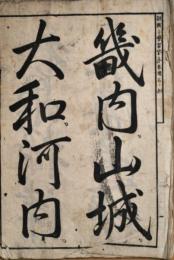 畿内山城
大和河内